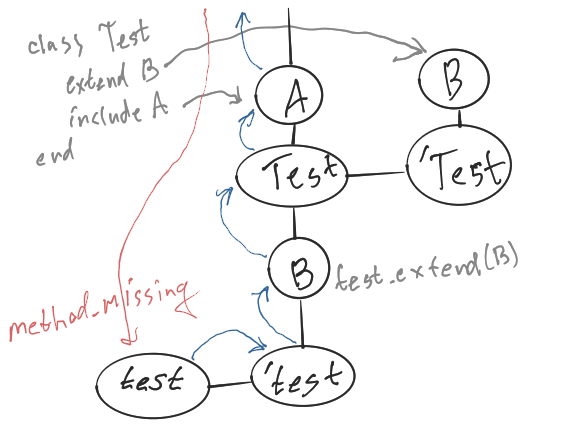 class Test
extend B
include A
end
A
B
Test
'Test
B
test_extend(B)
method_missing
test
'test